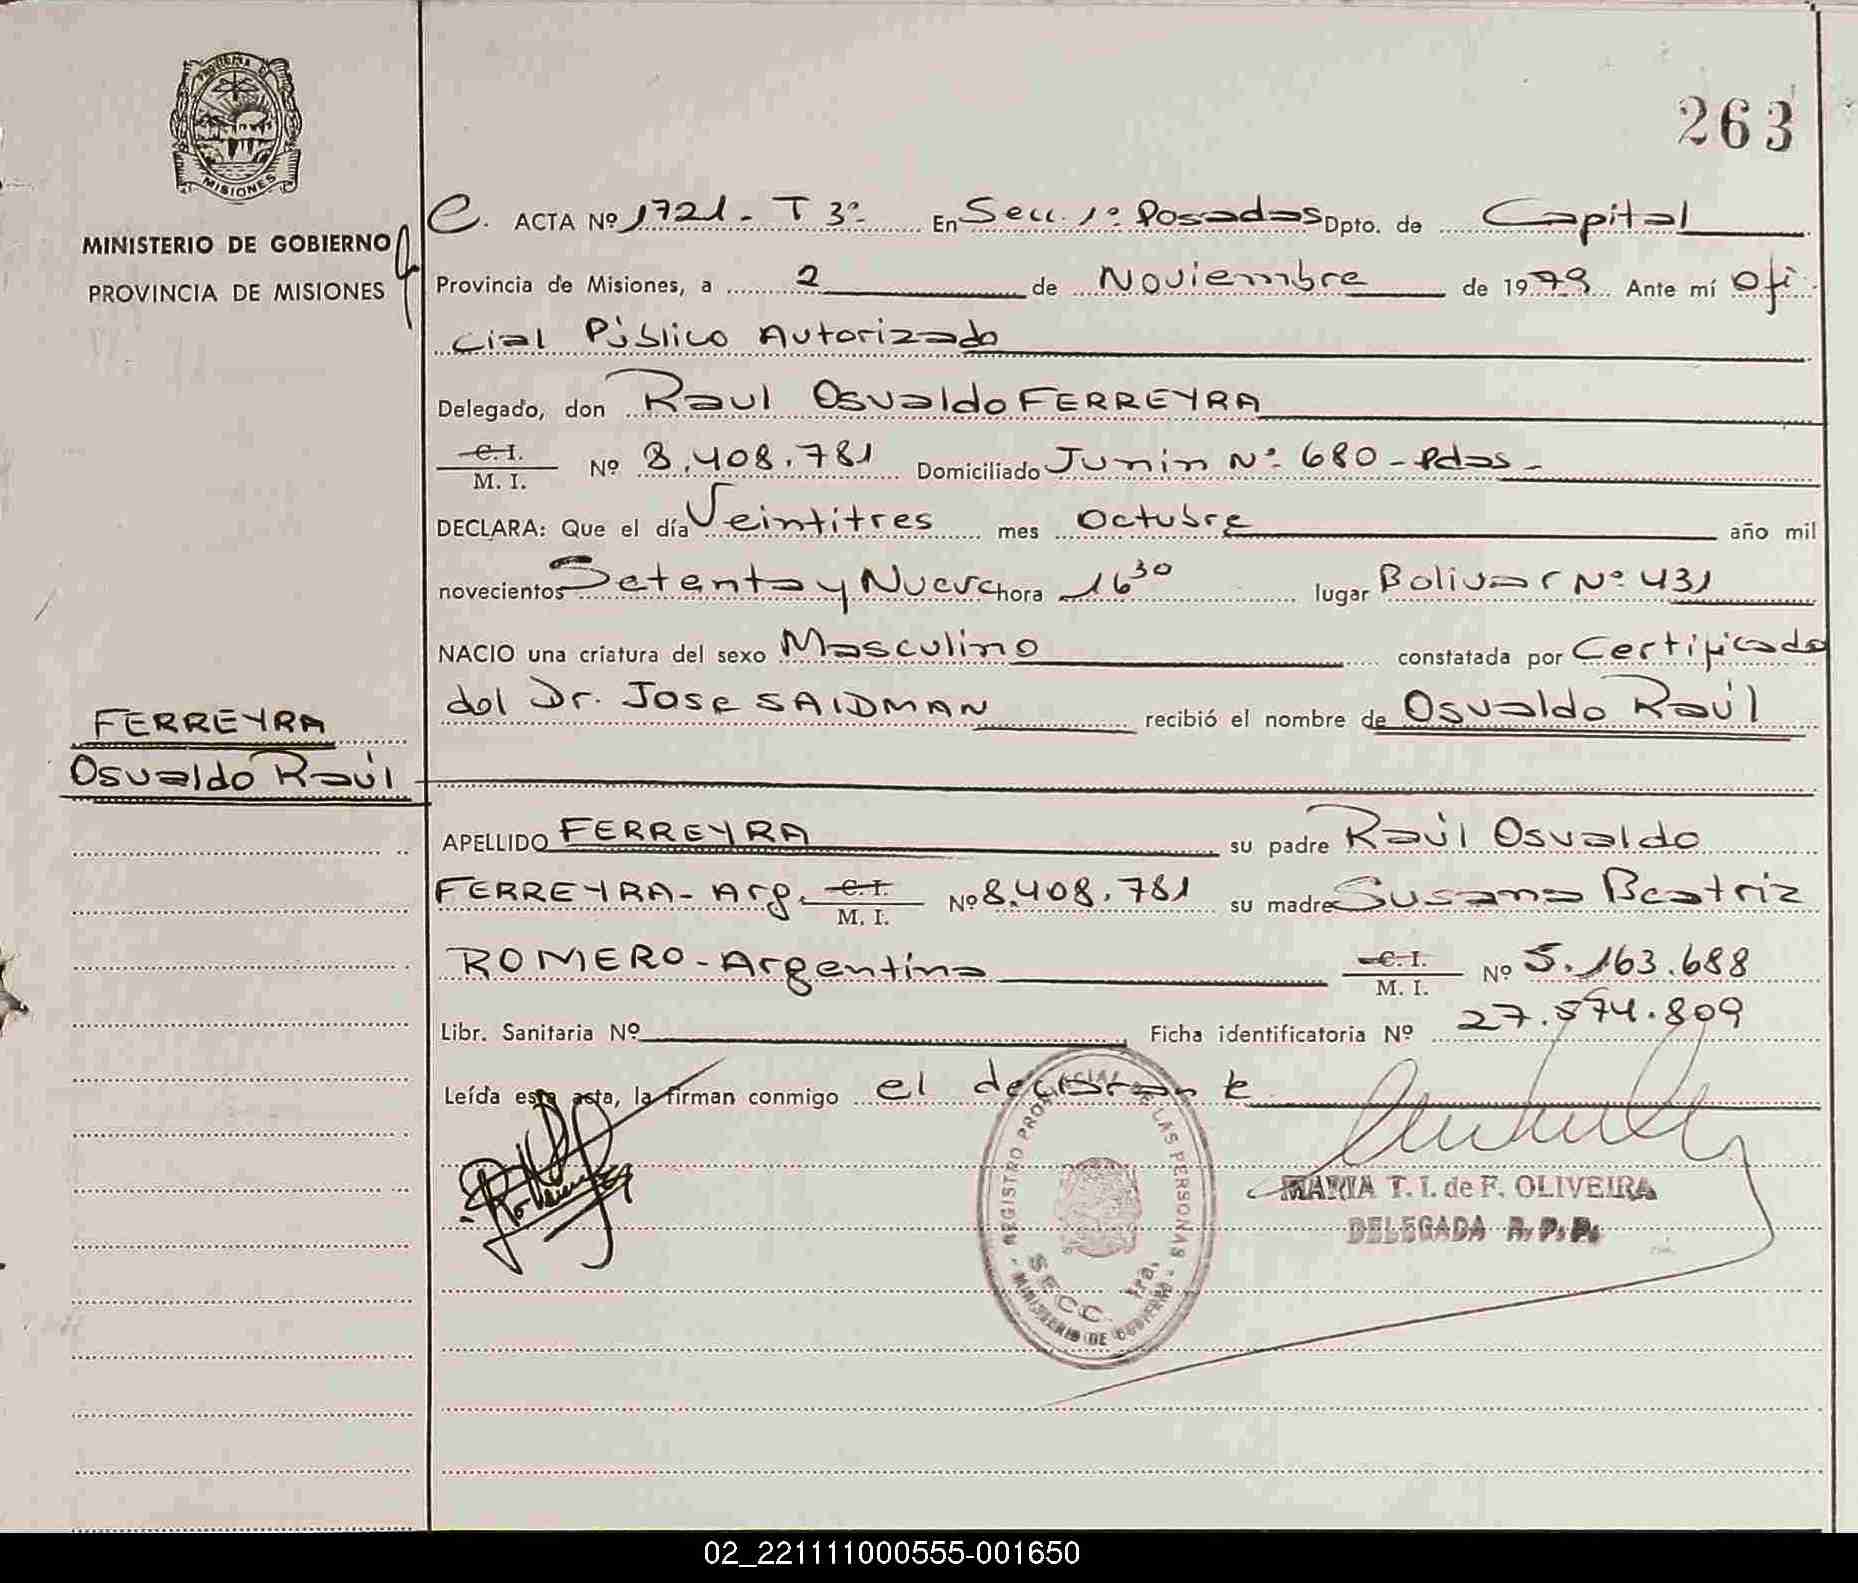 263
PROVINCIA DE
MISIONES
MINISTERIO DE GOBIERNO
PROVINCIA DE MISIONES
C. ACTA Nº 1721 - T 3º - En Secc. 1º Posadas Dpto. de Capital
Provincia de Misiones, a 2 de Noviembre de 1979 Ante mí Ofi
cial Público Autorizado
Delegado, don Raul Osvaldo FERREYRA
C. I.
M. I. Nº 8.408.781 Domiciliado Junin Nº 680 - Pdas -
DECLARA: Que el día Veintitres mes Octubre año mil
novecientos Setenta y Nueve hora 16 30 lugar Bolivar Nº 431
NACIO una criatura del sexo Masculino constatada por Certificado
del Dr. Jose SAIDMAN recibió el nombre de Osvaldo Raúl
FERREYRA
Osvaldo Raúl
APELLIDO FERREYRA su padre Raúl Osvaldo
FERREYRA - Arg. C. I.
M. I. Nº 8.408.781 su madre Susana Beatriz
ROMERO - Argentina C. I.
M. I. Nº 5.163.688
Libr. Sanitaria Nº Ficha identificatoria Nº 27.574.809
Leída esta acta, la firman conmigo el declarante
REGISTRO PROVINCIAL DE LAS PERSONAS
SECC. 1ra.
MINISTERIO DE GOBIERNO
MARIA T. I. de F. OLIVEIRA
DELEGADA R. P. P.
02_221111000555-001650